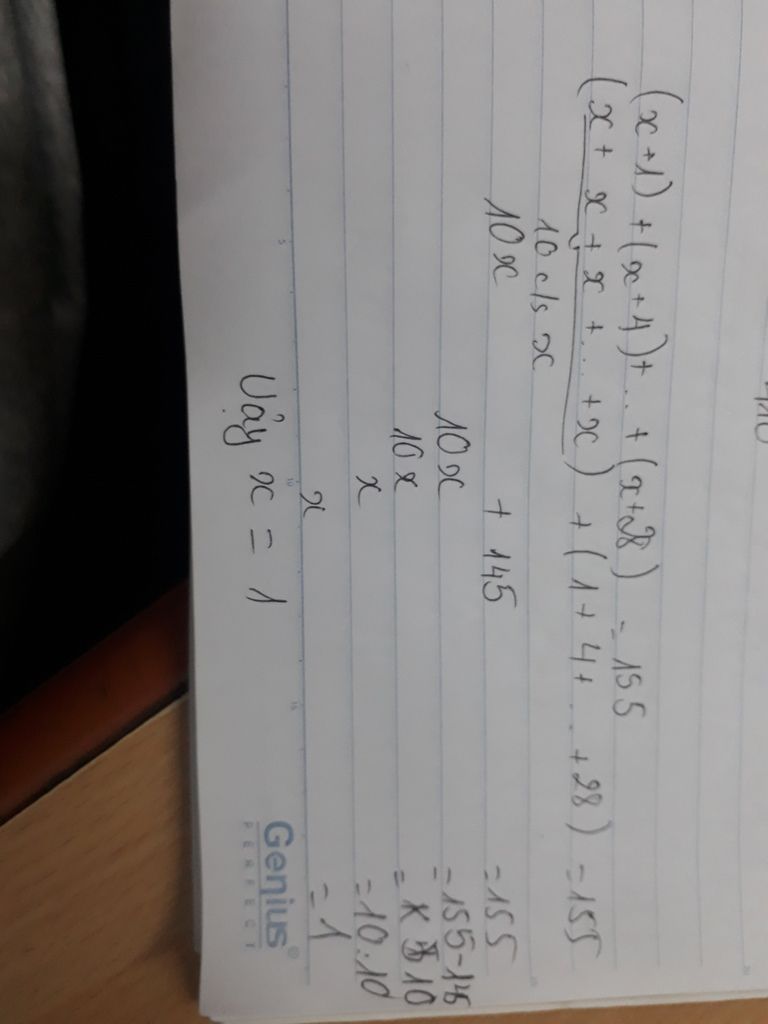 410
(x+1)+(x+4)+...+(x+28) = 155
(x+x+x+...+x)+(1+4+...+28) = 155
10 c/s x
10x + 145 = 155
10x = 155-145
10x = 10
x = 10:10
x = 1
Vậy x = 1
Genius®
PERFECT